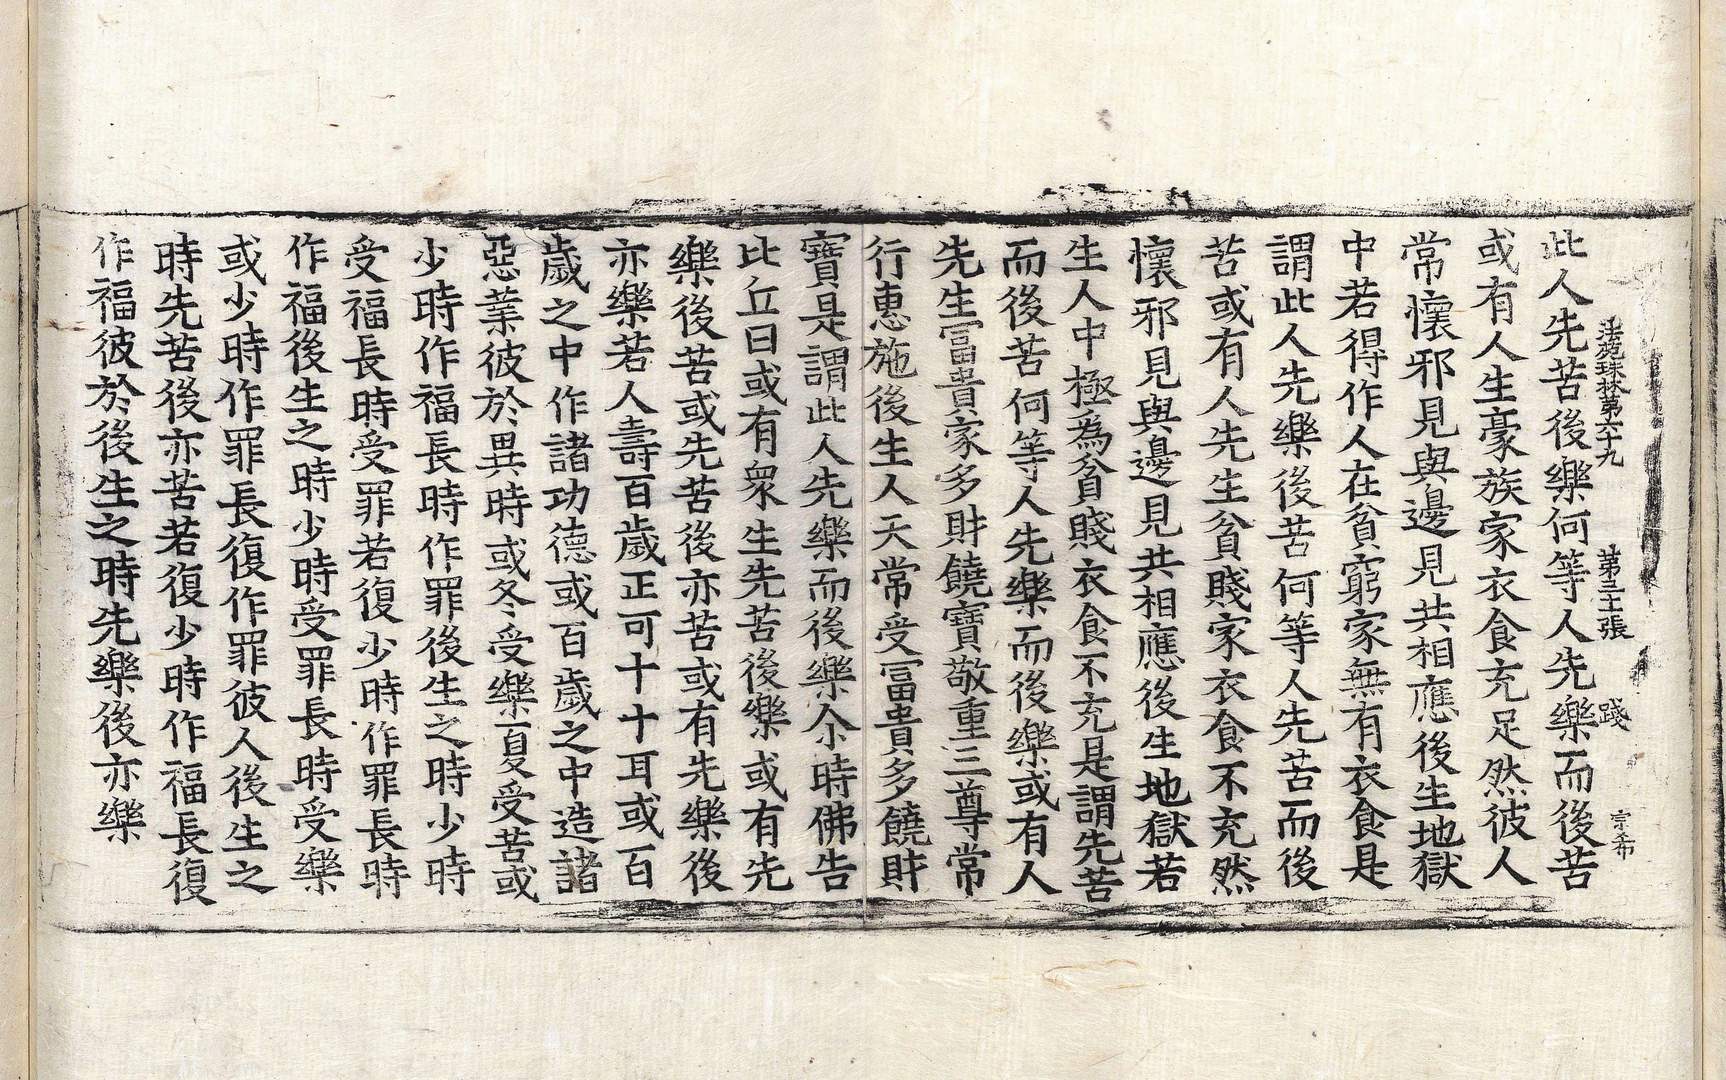 法苑珠林第六十九　第三十張　踐　宗希
此人先苦後樂何等人先樂而後苦
或有人生豪族家衣食充足然彼人
常懷邪見與邊見共相應後生地獄
中若得作人在貧窮家無有衣食是
謂此人先樂後苦何等人先苦而後
苦或有人先生貧賤家衣食不充然
懷邪見與邊見共相應後生地獄若
生人中極為貧賤衣食不充是謂先苦
而後苦何等人先樂而後樂或有人
先生冨貴家多財饒寶敬重三尊常
行惠施後生人天常受冨貴多饒財
寶是謂此人先樂而後樂尒時佛告
比丘曰或有衆生先苦後樂或有先
樂後苦或先苦後亦苦或有先樂後
亦樂若人壽百歲正可十十耳或百
歲之中作諸功德或百歲之中造諸
惡業彼於異時或冬受樂夏受苦或
少時作福長時作罪後生之時少時
受福長時受罪若復少時作罪長時
作福後生之時少時受罪長時受樂
或少時作罪長復作罪彼人後生之
時先苦後亦苦若復少時作福長復
作福彼於後生之時先樂後亦樂